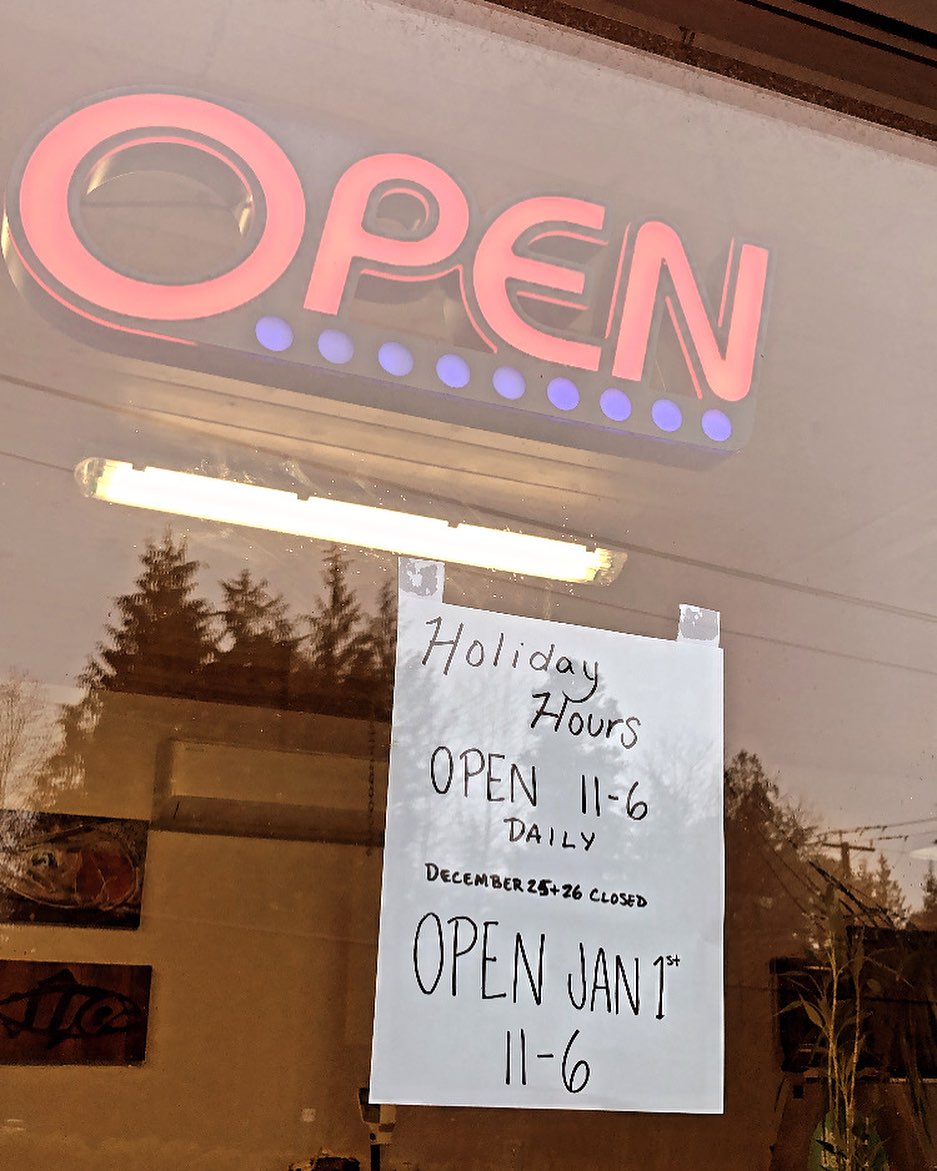 OPEN
Holiday
Hours
OPEN 11-6
DAILY
DECEMBER 25+26 CLOSED
OPEN JAN 1st
11-6